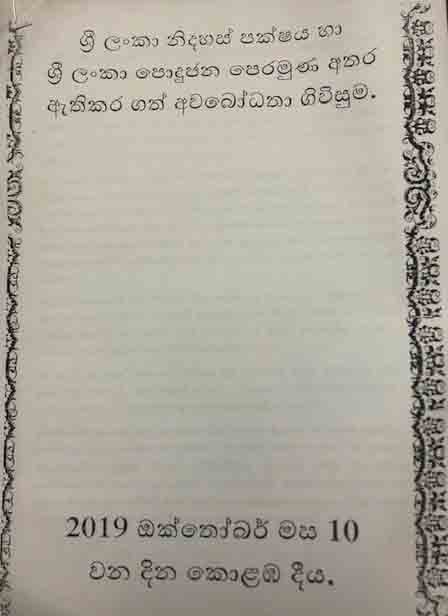 ශ්‍රී ලංකා නිදහස් පක්ෂය හා
ශ්‍රී ලංකා පොදුජන පෙරමුණ අතර
ඇතිකර ගත් අවබෝධතා ගිවිසුම.
2019 ඔක්තෝබර් මස 10
වන දින කොළඹ දීය.